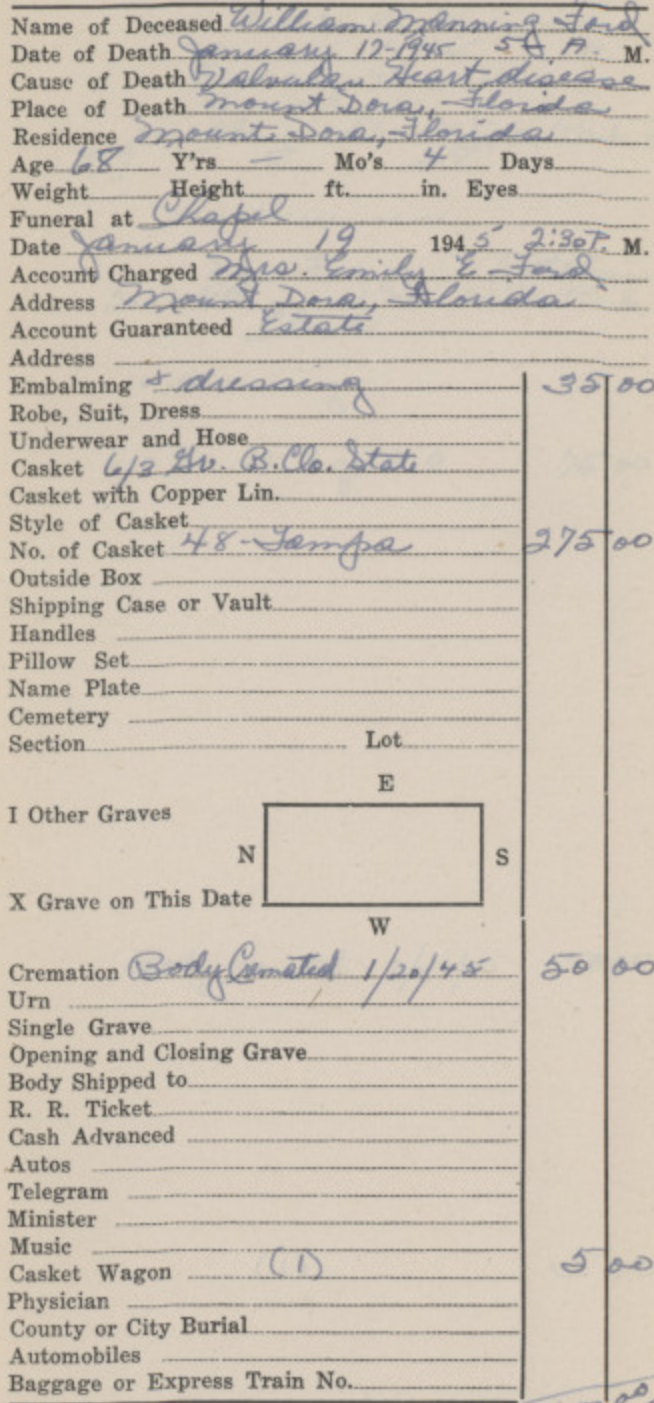 Name of Deceased William Manning Ford
Date of Death January 17-1945 5 A. M.
Cause of Death Valvular Heart disease
Place of Death Mount Dora, Florida
Residence Mount Dora, Florida
Age 68 Y'rs — Mo's 4 Days
Weight Height ft. in. Eyes
Funeral at Chapel
Date January 19 1945 2:30 P. M.
Account Charged Mrs. Emily E. Ford
Address Mount Dora, Florida
Account Guaranteed Estate
Address
Embalming & dressing 35 00
Robe, Suit, Dress
Underwear and Hose
Casket 6/3 Gr. B. Clo. State
Casket with Copper Lin.
Style of Casket
No. of Casket 48-Tampa 275 00
Outside Box
Shipping Case or Vault
Handles
Pillow Set
Name Plate
Cemetery
Section Lot
E
I Other Graves
N S
X Grave on This Date
W
Cremation Body Cremated 1/20/45 50 00
Urn
Single Grave
Opening and Closing Grave
Body Shipped to
R. R. Ticket
Cash Advanced
Autos
Telegram
Minister
Music
Casket Wagon (1) 5 00
Physician
County or City Burial
Automobiles
Baggage or Express Train No.